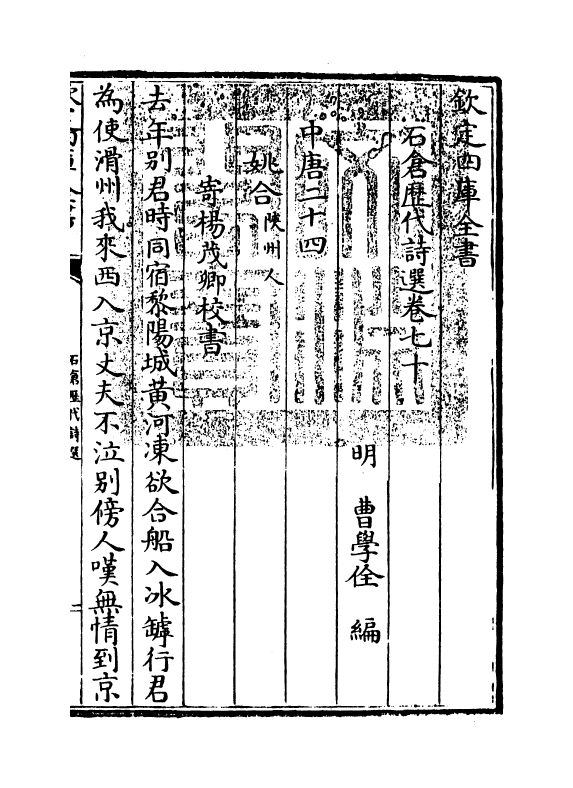 欽定四庫全書
石倉歷代詩選卷七十
明 曹學佺 編
中唐二十四
姚合陜州人
寄楊茂卿校書
去年别君時同宿黎陽城黄河凍欲合船入冰罅行君
為使滑州我來西入京丈夫不泣别傍人嘆無情到京
石倉歷代詩選